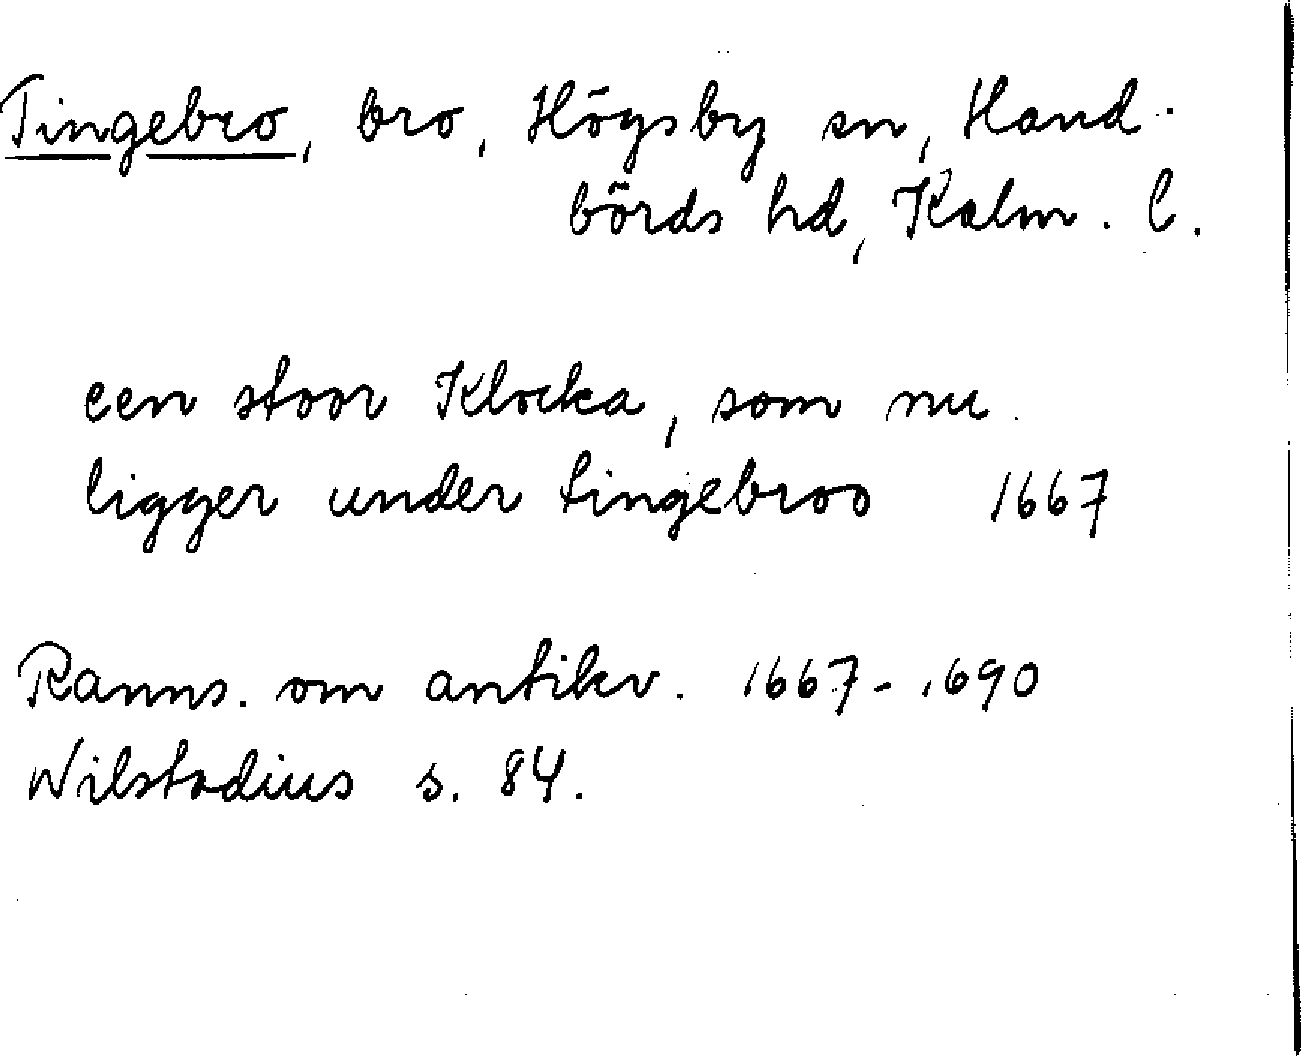 Tingebro, bro, Högsby sn, Hand-
börds hd, Kalm. l.
een stoor Klocka, som nu
ligger under tingebroo 1667
Ranns. om antikv. 1667-1690
Wilstadius s. 84.